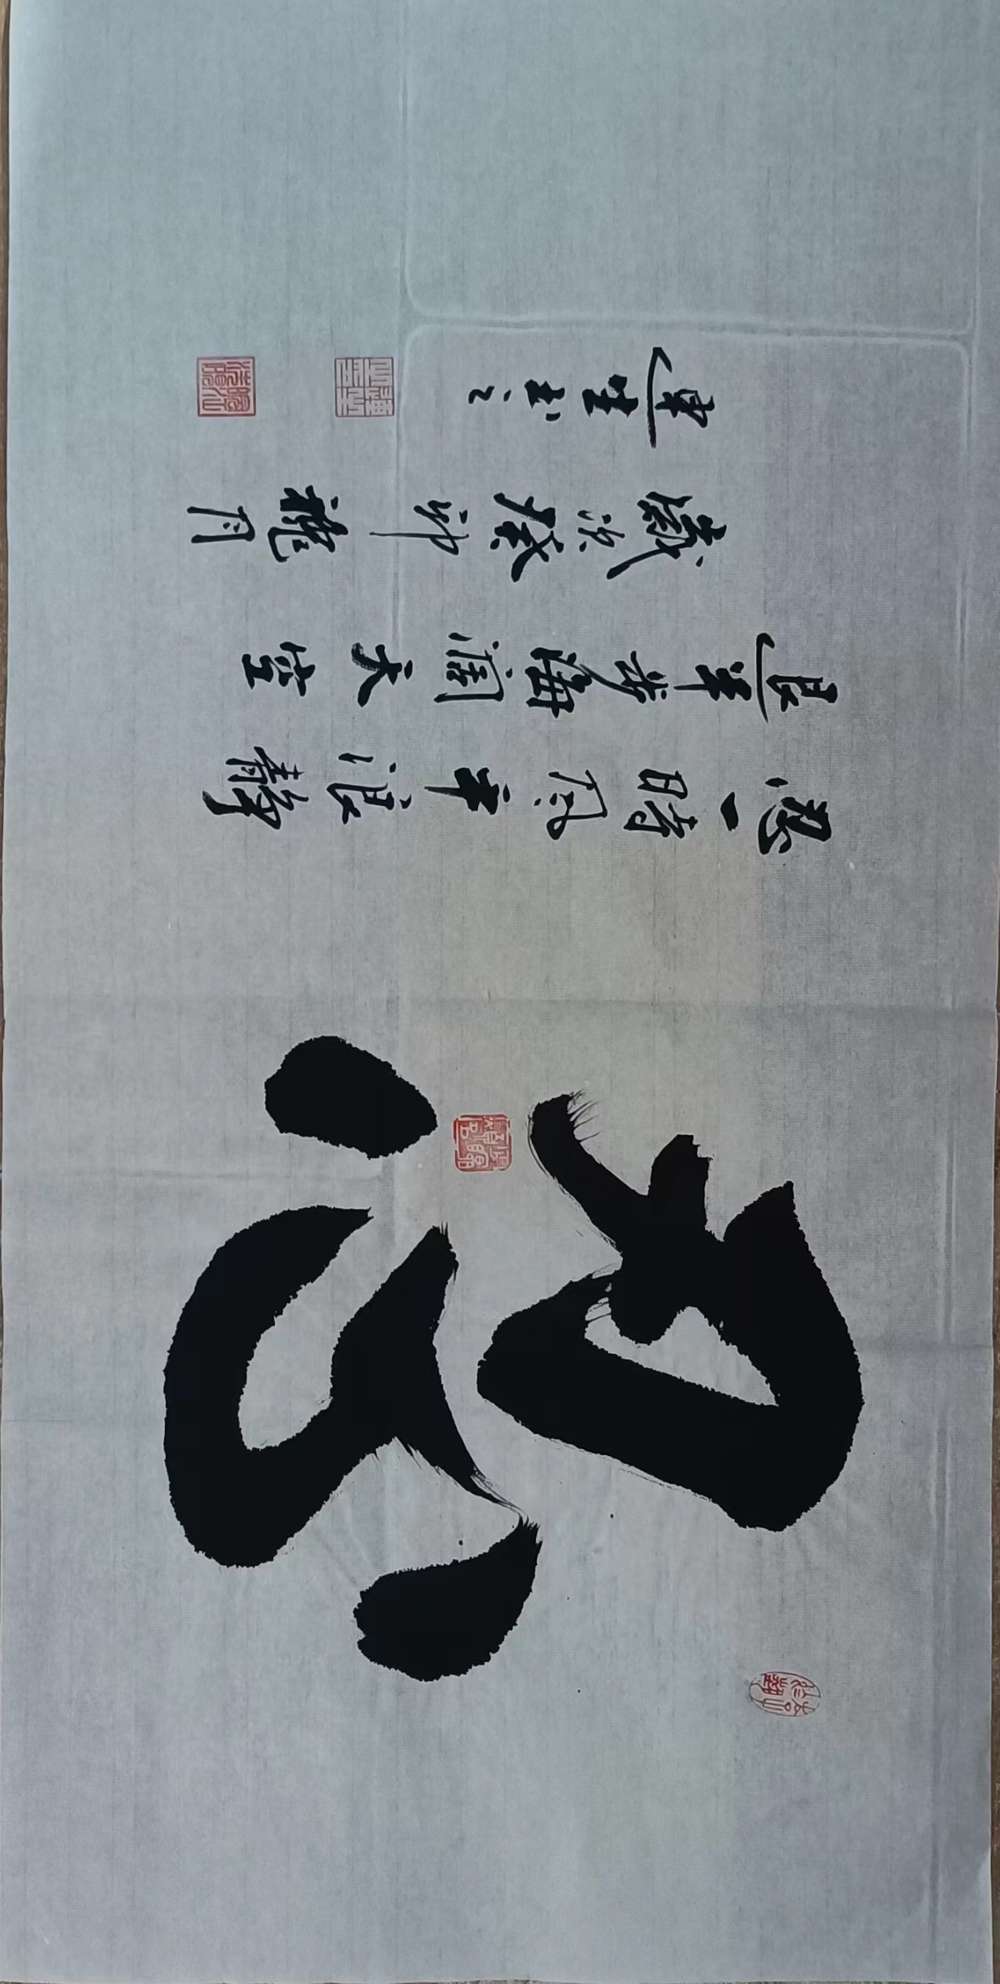 忍
忍一時風平浪靜
退半步海闊天空
歲次癸卯龍月
連生書之